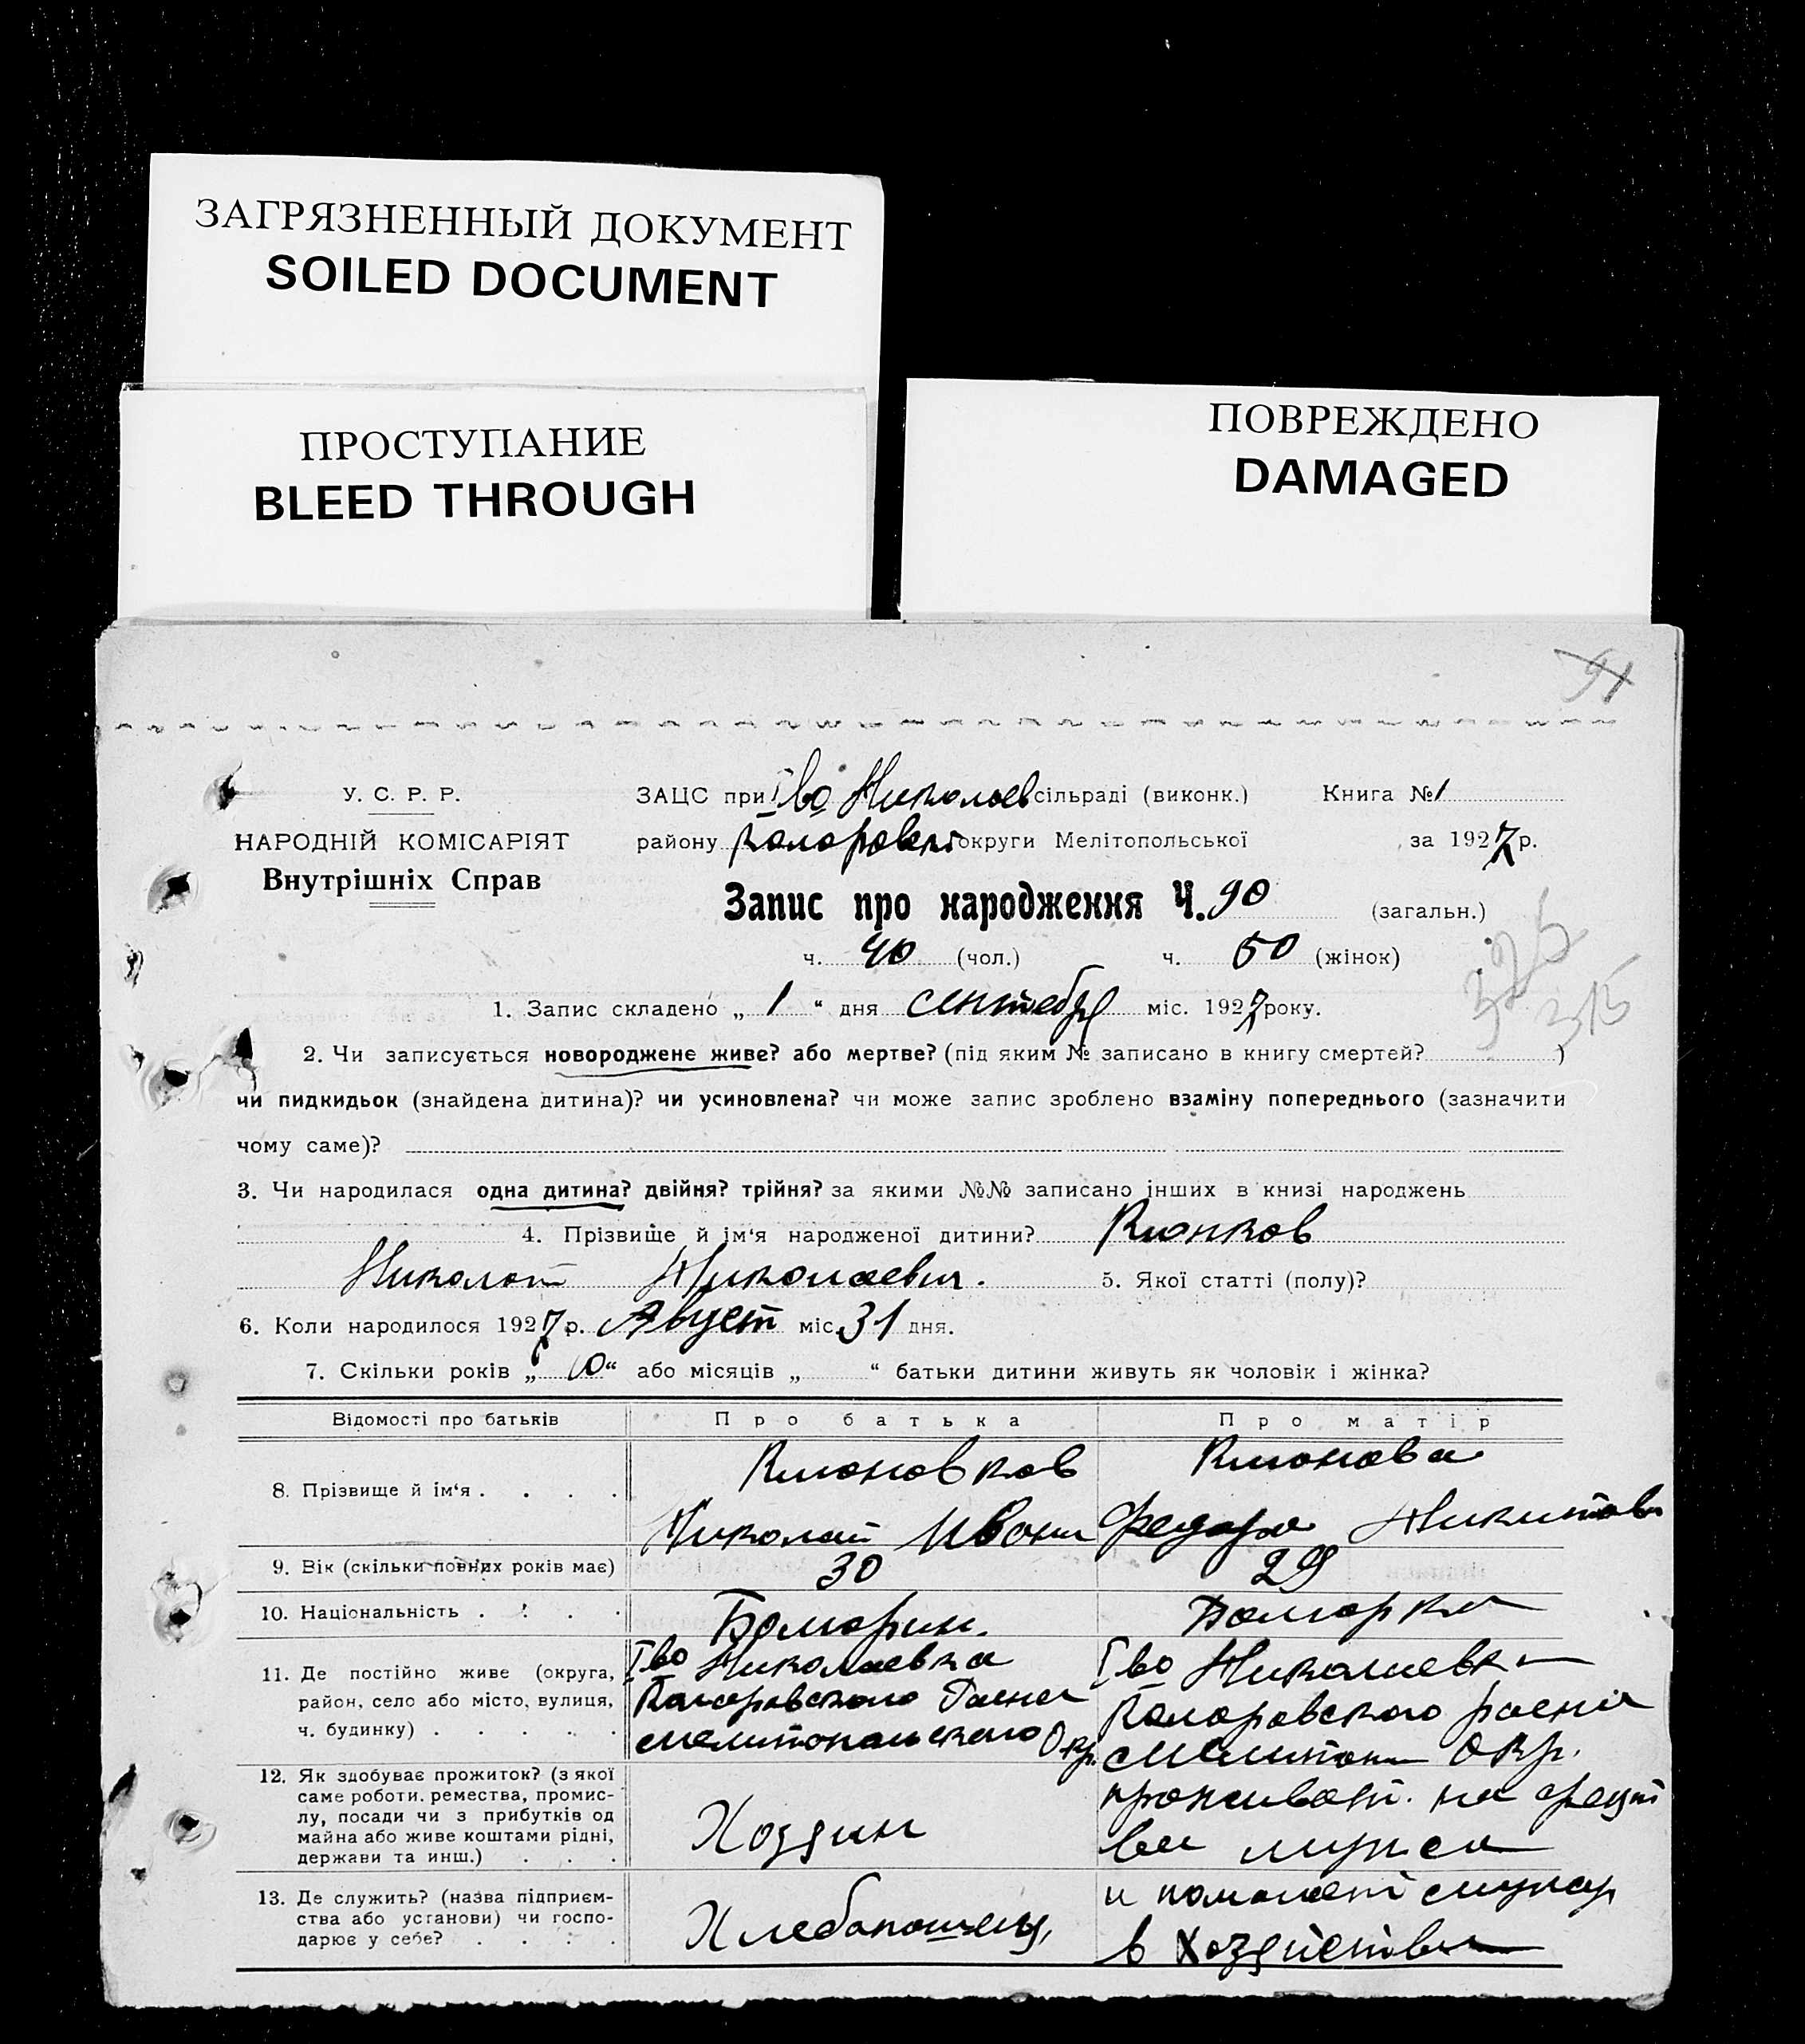 ЗАГРЯЗНЕННЫЙ ДОКУМЕНТ
SOILED DOCUMENT
ПРОСТУПАНИЕ
BLEED THROUGH
ПОВРЕЖДЕНО
DAMAGED
91
У. С. Р. Р.
НАРОДНІЙ КОМІСАРІЯТ
Внутрішніх Справ
ЗАЦС при Iво Николаев сільраді (виконк.) Книга № 1
району Коларовск округи Мелітопольської за 1927 р.
Запис про народження Ч. 90 (загальн.)
ч. 40 (чол.) ч. 50 (жінок)
325
315
1. Запис складено „ 1 “ дня сентебря міс. 1927 року.
2. Чи записується новороджене живе? або мертве? (під яким № записано в книгу смертей? )
чи пидкидьок (знайдена дитина)? чи усиновлена? чи може запис зроблено взаміну попереднього (зазначити
чому саме)?
3. Чи народилася одна дитина? двійня? трійня? за якими №№ записано інших в книзі народжень
4. Прізвище й ім‘я народженої дитини?
Николай Николаевич. 5. Якої статті (полу)?
6. Коли народилося 1927 р. Август міс. 31 дня.
7. Скільки років „ 10 “ або місяців „ “ батьки дитини живуть як чоловік і жінка?
Відомості про батьків Про батька Про матір
8. Прізвище й ім‘я . . . .
Николай Ивони Федора Никитов
9. Вік (скільки повних років має) 30 29
10. Національність . . . . Болгорин. Болгорка
11. Де постійно живе (округа, район, село або місто, вулиця, ч. будинку) . . . . .
Iво Николаевка
Коларовского Раена
Мелитопольского Окр.
Iво Николаевка
Коларовского раена
Мелитопол Окр.
12. Як здобуває прожиток? (з якої саме роботи. ремества, промислу, посади чи з прибутків од майна або живе коштами рідні, держави та инш.) . . .
Хоззяин
проживает. на средст
ва мужа
13. Де служить? (назва підприємства або установи) чи господарює у себе? . . . .
Хлебопошец,
и помогает мужу
в Хоззяйстви